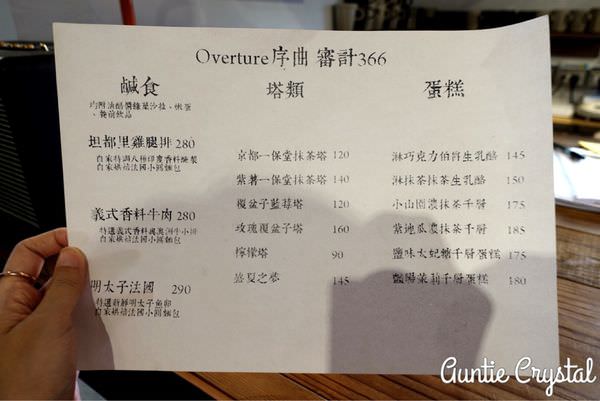 Overture序曲 審計366
鹹食
均附油醋醬綠葉沙拉、嫩蛋
、餐前飲品
坦都里雞腿排 280
自家特調八種印度香料醃製
自家烘焙法國小圓麵包
義式香料牛肉 280
特選義式香料與澳洲牛小排
自家烘焙法國小圓麵包
明太子法國 290
特選新鮮明太子魚卵
自家烘焙法國小圓麵包
塔類
京都一保堂抹茶塔 120
紫薯一保堂抹茶塔 140
覆盆子藍莓塔 120
玫瑰覆盆子塔 160
檸檬塔 90
盛夏之夢 145
蛋糕
淋巧克力伯爵生乳酪 145
淋抹茶抹茶生乳酪 150
小山園濃抹茶千層 175
紫地瓜濃抹茶千層 185
鹽味太妃糖千層蛋糕 175
豔陽茉莉千層蛋糕 180
Auntie Crystal